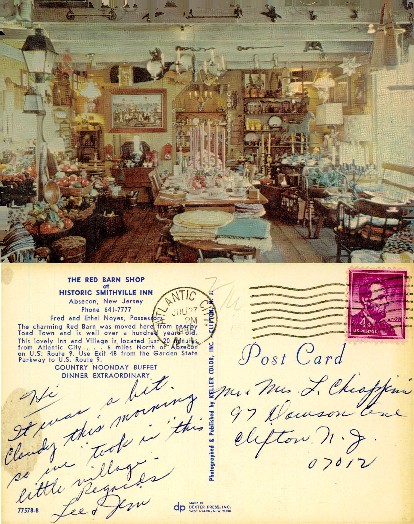 THE RED BARN SHOP
at
HISTORIC SMITHVILLE INN
Absecon, New Jersey
Phone 641-7777
Fred and Ethel Noyes, Possessors
The charming Red Barn was moved here from nearby
Toad Town and is well over a hundred years old.
This lovely Inn and Village is located just 20 minutes
from Atlantic City . . . 6 miles North of Absecon
on U.S. Route 9. Use Exit 48 from the Garden State
Parkway to U.S. Route 9.
COUNTRY NOONDAY BUFFET
DINNER EXTRAORDINARY
Hi
It was a bit
cloudy this morning
so we "took in" this
little village.
Regards
Lee &
77578-B
dp
DEXTER PRESS, INC.
Photographed & Published by KELLER COLOR, INC.
ATLANTIC CITY
PM
4¢
Post Card
Mrs L.
97 Dawson Ave
Clifton N.J.
07012